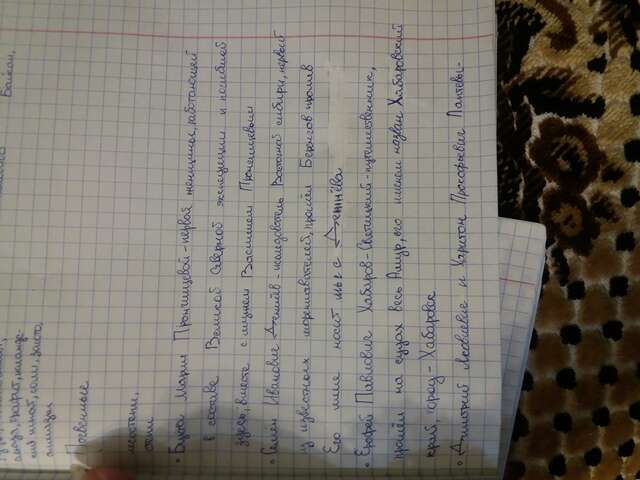 Байкал,
алмазы
Почвенные
• Бухта Марии Прончищевой - первой женщины, работающей
в составе Великой Северной экспедиции и погибшей
здесь, вместе с мужем Василием Прончищевым
• Семён Иванович Дежнёв - исследователь Восточной сибири, первый
из известных мореплавателей, прошёл Берингов пролив
Его имя носит мыс Дежнёва
• Ерофей Павлович Хабаров-Святицкий - путешественник,
прошёл на судах весь Амур, его именем назван Хабаровский
край, город - Хабаровск
• Дмитрий Яковлевич и Харитон Прокофьевич Лаптевы -